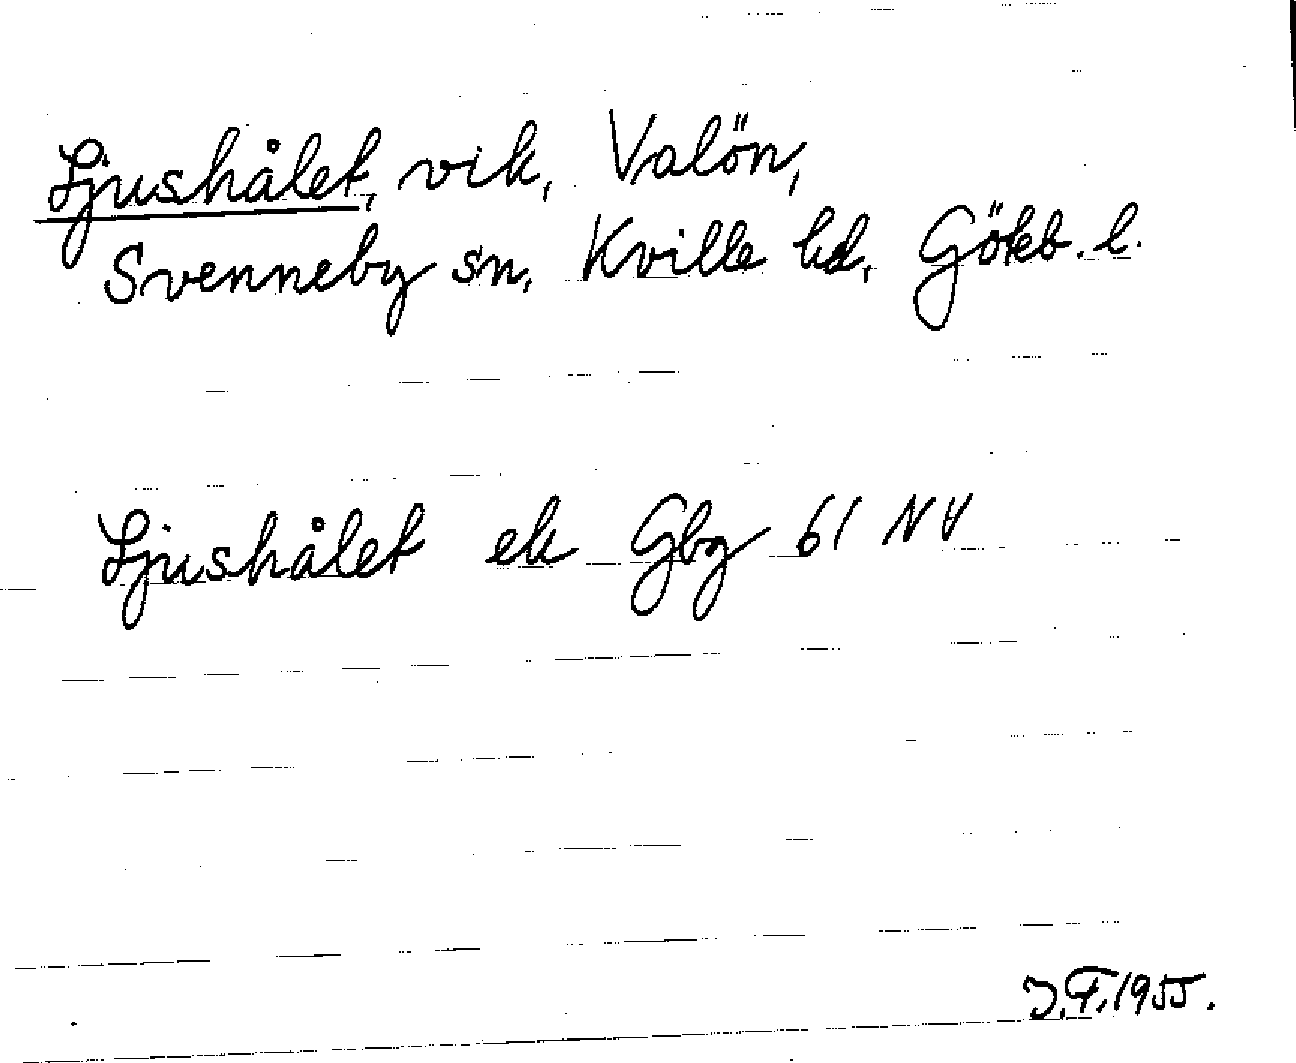 Ljushålet, vik, Valön,
Svenneby sn, Kville hd, Göteb. l.
Ljushålet ek Gbg 61 NV
J.F. 1955.